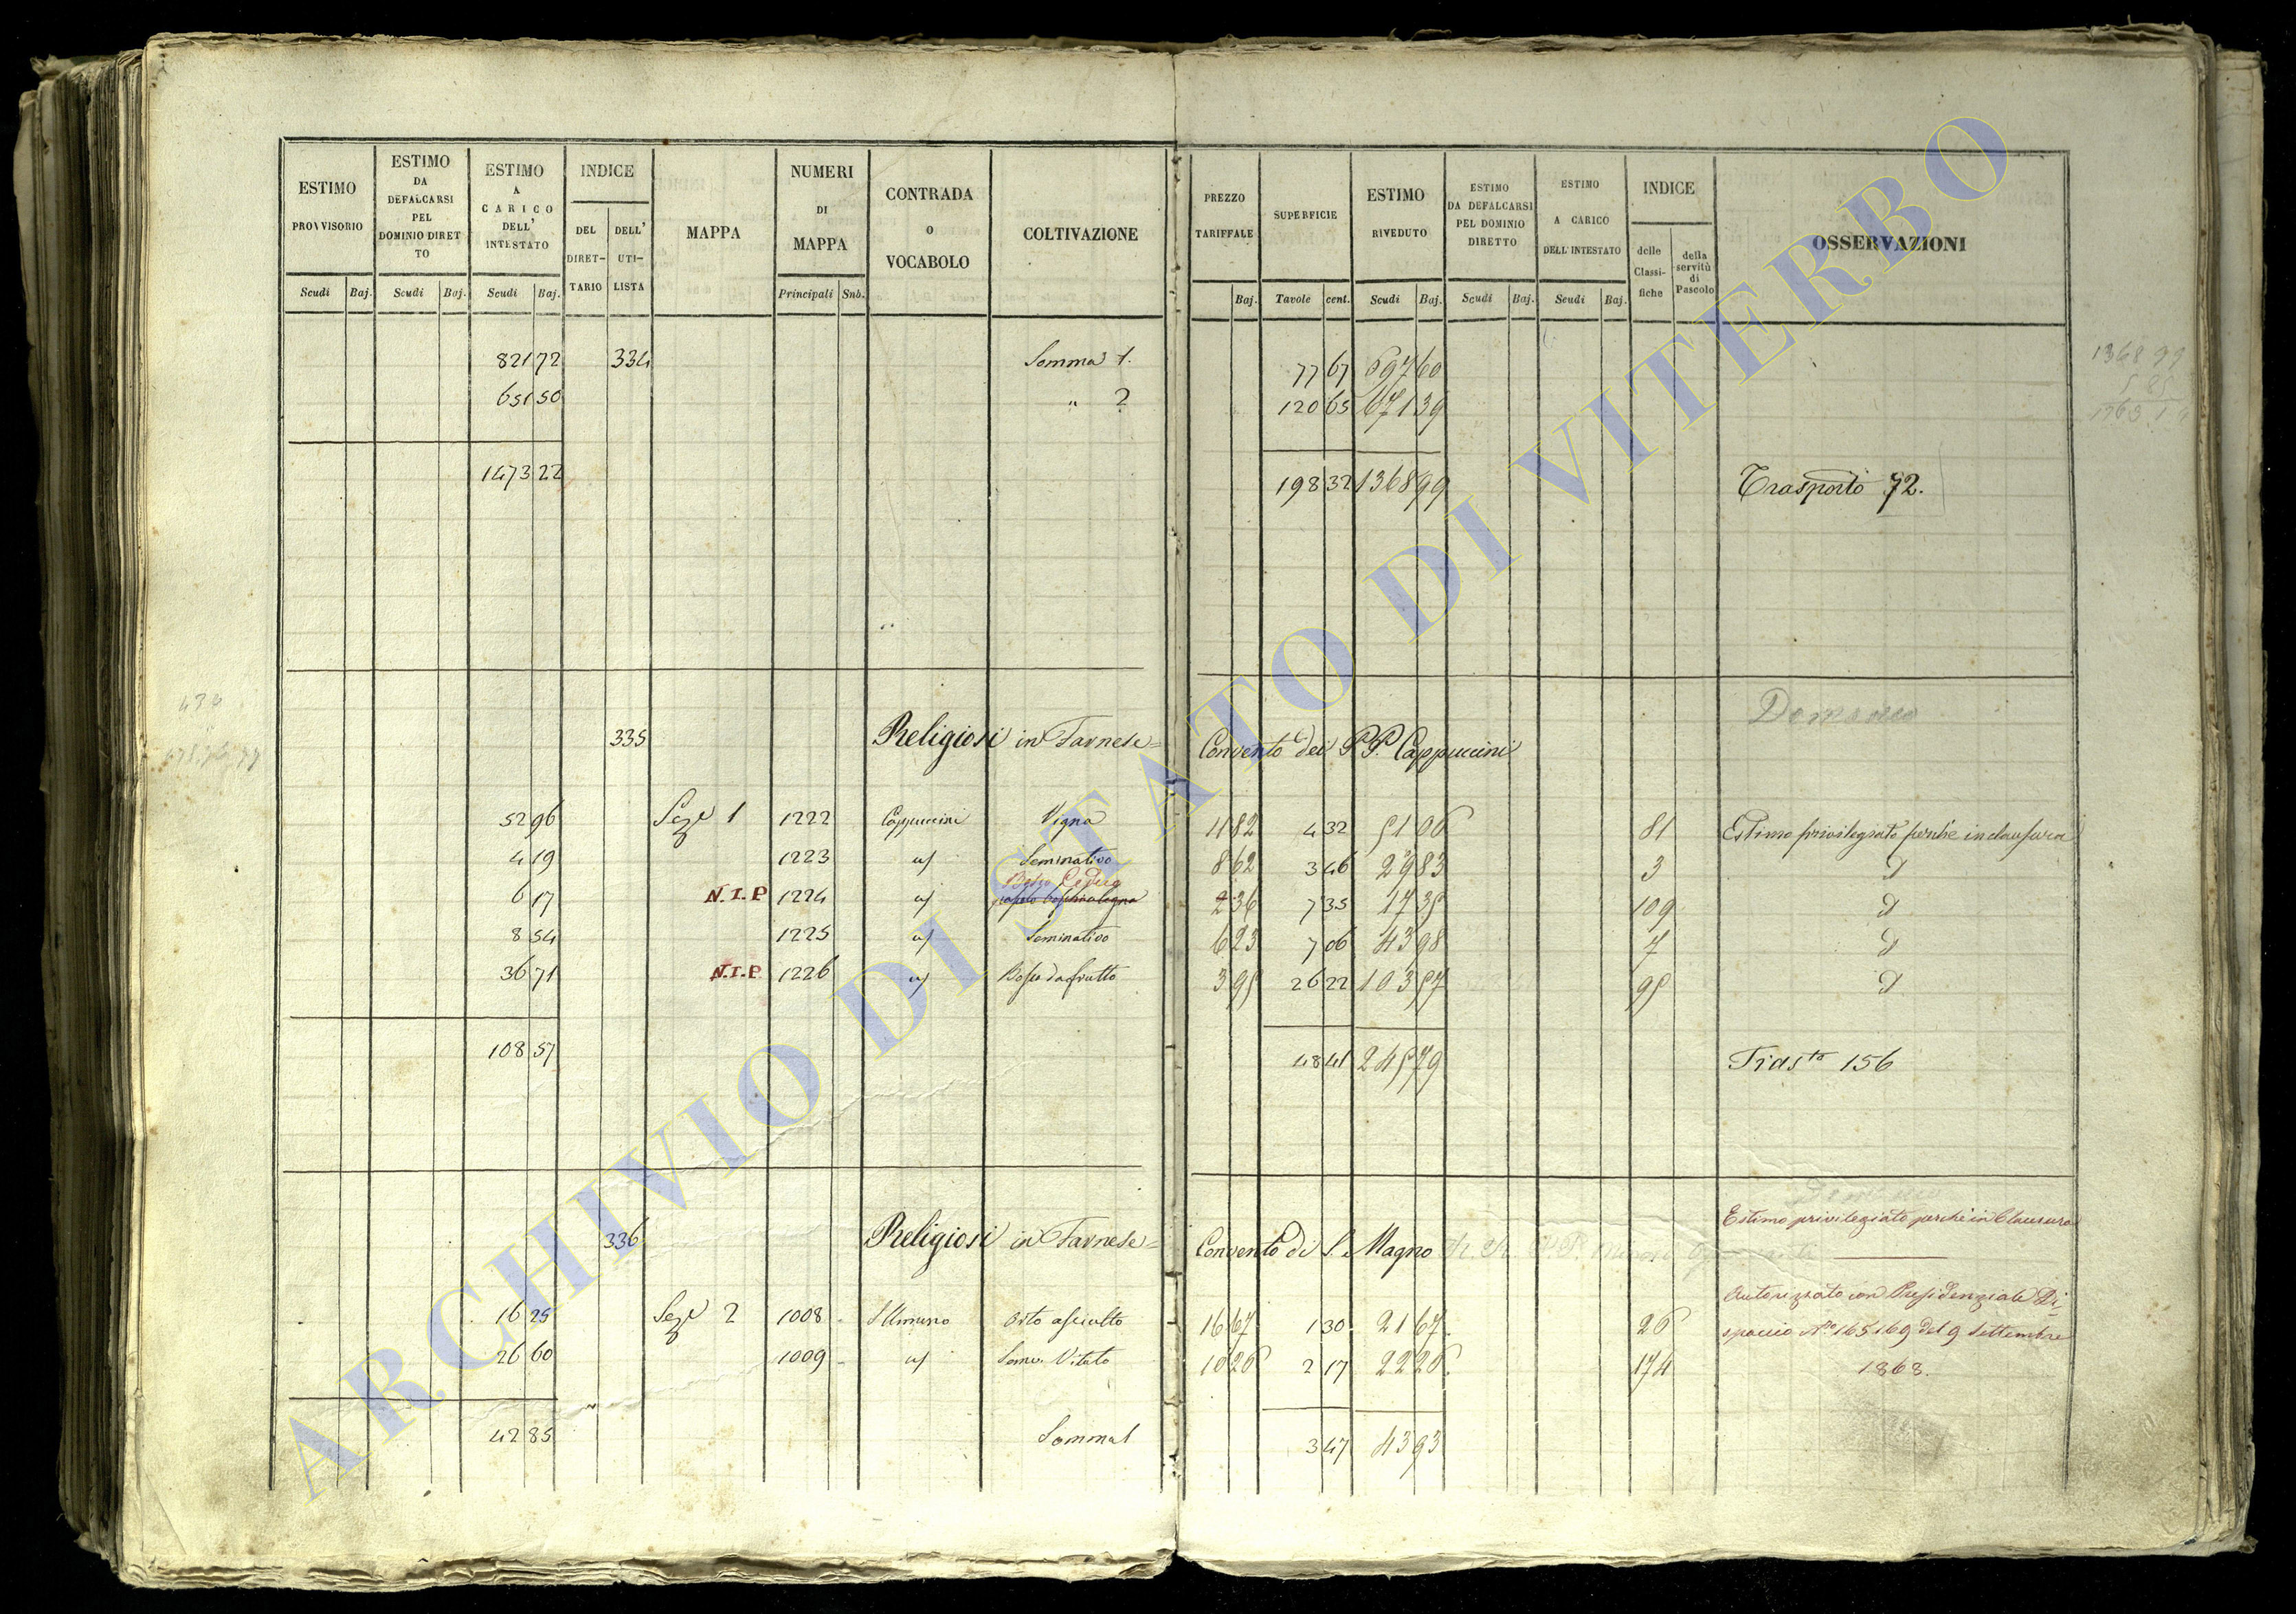 ESTIMO PROVVISORIO Scudi Baj.
ESTIMO DA DEFALCARSI PEL DOMINIO DIRETTO Scudi Baj.
ESTIMO A CARICO DELL' INTESTATO Scudi Baj.
INDICE DEL DIRET-TARIO DELL' UTI-LISTA
MAPPA
NUMERI DI MAPPA Principali Sub.
CONTRADA O VOCABOLO
COLTIVAZIONE
PREZZO TARIFFALE Baj.
SUPERFICIE Tavole cent.
ESTIMO RIVEDUTO Scudi Baj.
ESTIMO DA DEFALCARSI PEL DOMINIO DIRETTO Scudi Baj.
ESTIMO A CARICO DELL'INTESTATO Scudi Baj.
INDICE delle Classi-fiche della servitù di Pascolo
OSSERVAZIONI
821 72 334 Somma 1. 77 67 697 60 1368 99
651 50 " 2 120 65 671 39
1473 22 198 32 1368 99 Trasporto 72.
Demanio
335 Religiosi in Farnese = Convento dei PP. Cappuccini
52 96 Sez.e 1 1222 Cappuccini Vigna 11 82 4 32 51 06 81 Estimo privilegiato perchè in clausura
4 19 1223 Seminativo 8 62 3 46 29 83 3 d
Bosco Ceduo
6 17 N.I.P 1224 2 36 7 35 17 35 109 d
8 54 1225 Seminativo 6 23 7 06 43 98 7 d
36 71 N.I.P. 1226 Bosco da frutto 3 95 26 22 103 57 95 d
108 57 48 41 245 79 Trasto 156
Demanio
Estimo privilegiato perchè in Clausura
336 Religiosi in Farnese = Convento di S. Magno
Autorizzato con Presidenziale Di-
16 25 Sez.e 2 1008 S Umano Orto asciutto 16 67 1 30 21 67 26 spaccio No 165169 del 9 Settembre
26 60 1009 Semo. Vitato 10 26 2 17 22 26 174 1868.
42 85 Somma 1 3 47 43 93
ARCHIVIO DI STATO DI VITERBO